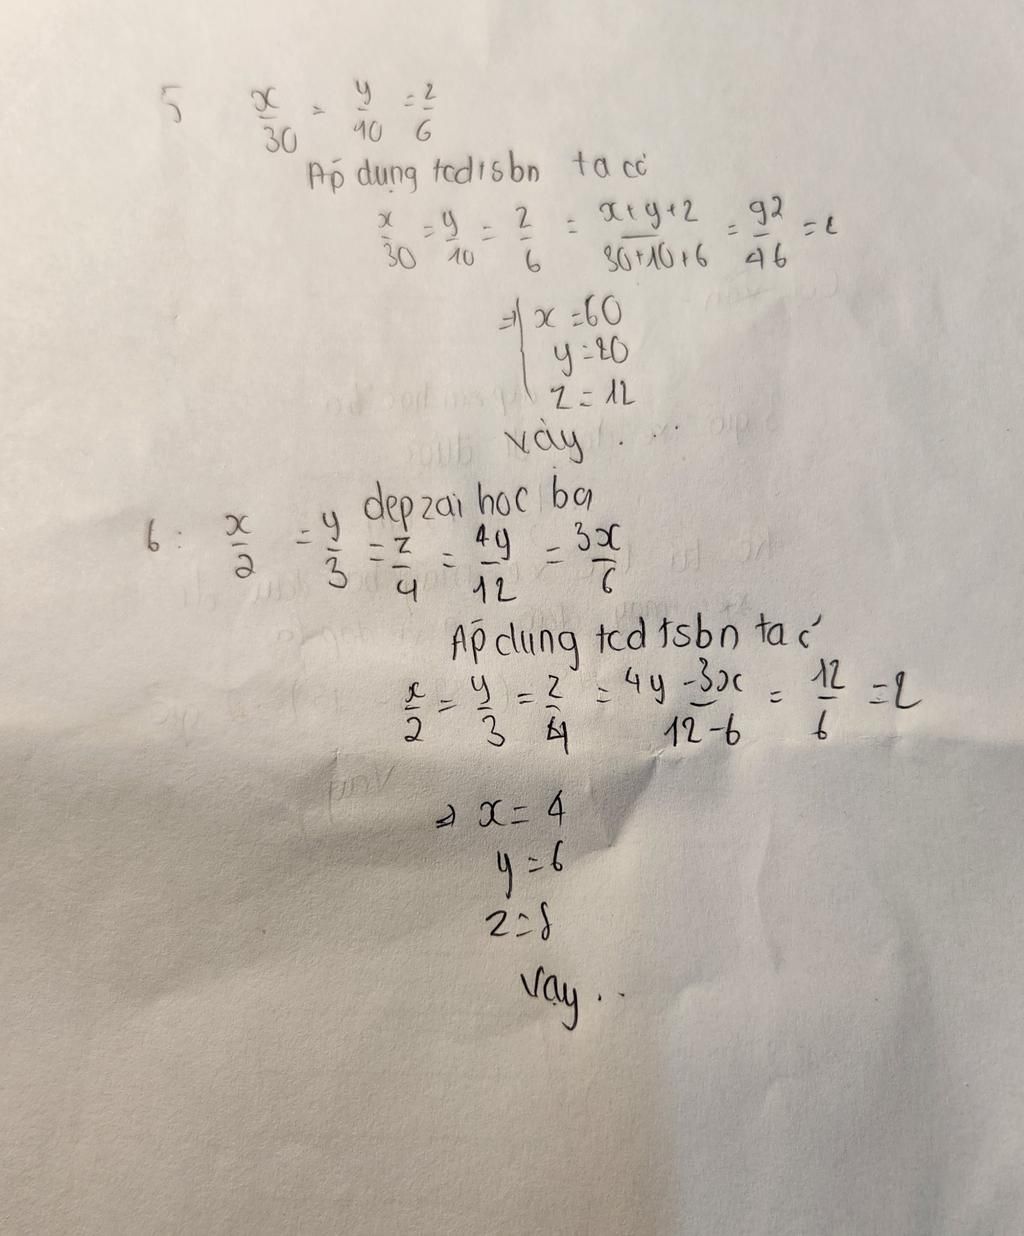 5 x/30 = y/10 = z/6
Áp dụng tcdtsbn ta có
x/30 = y/10 = z/6 = x+y+z/30+10+6 = 92/46 = 2
=> x = 60
y = 20
z = 12
vảy . . .
depzai học ba
6 : x/2 = y/3 = z/4 = 4y/12 = 3x/6
Áp dung tcdtsbn ta c
x/2 = y/3 = z/4 = 4y-3x/12-6 = 12/6 = 2
=> x = 4
y = 6
z = 8
Vạy . . .